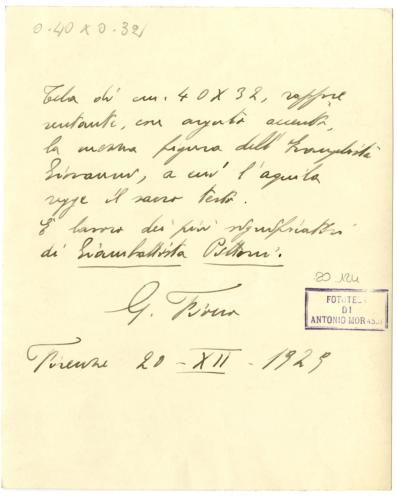 0.40 x 0.32
Tela di cm. 40 x 32, rappre
sentante, con arguti accenti,
la mezza figura dell'Evangelista
Giovanni, a cui l'aquila
regge il sacro testo.
È lavoro dei più significativi
di Giambattista Pittoni.
G. Fiocco
Firenze 20 - XII - 1929
FOTOTECA
DI
ANTONIO MORASSI